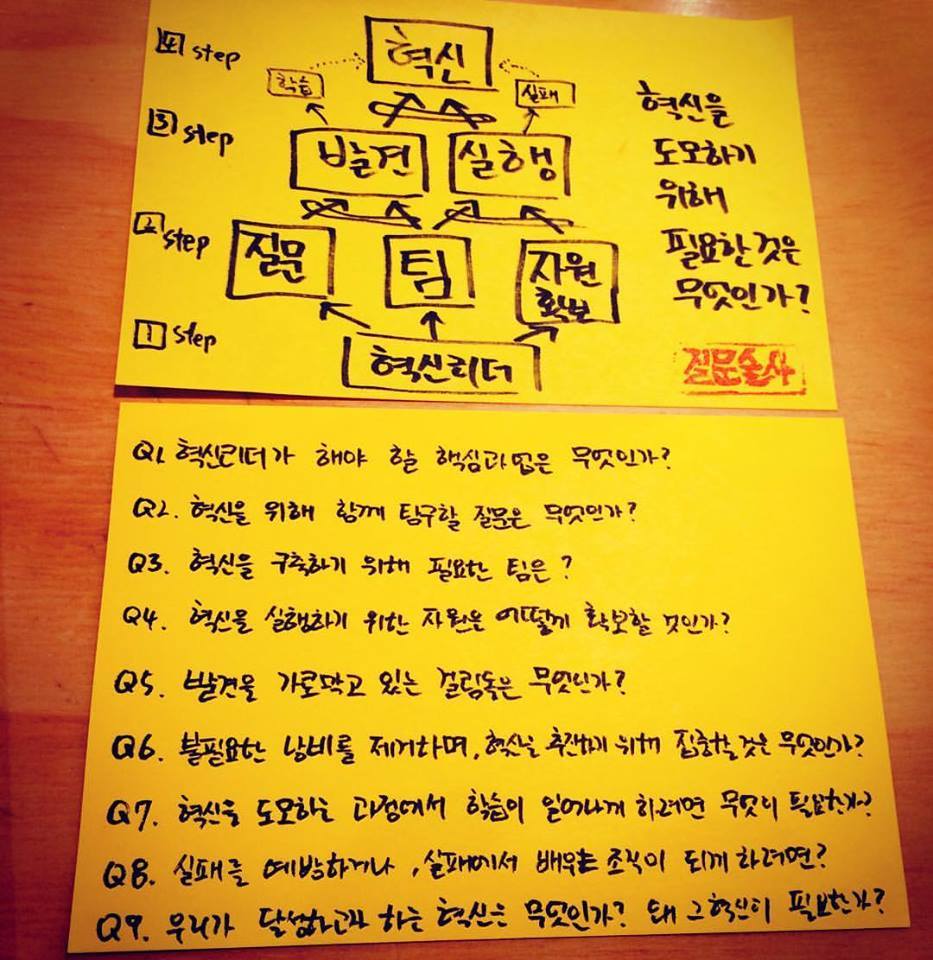 4 step
혁신
학습
실패
3 step
발견
실행
2 step
질문
팀
자원
확보
1 step
혁신리더
혁신을
도모하기
위해
필요한 것은
무엇인가?
질문술사
Q1. 혁신리더가 해야 할 핵심과업은 무엇인가?
Q2. 혁신을 위해 함께 탐구할 질문은 무엇인가?
Q3. 혁신을 구축하기 위해 필요한 팀은?
Q4. 혁신을 실행하기 위한 자원은 어떻게 확보할 것인가?
Q5. 발견을 가로막고 있는 걸림돌은 무엇인가?
Q6. 불필요한 낭비를 제거하며, 혁신을 추진하기 위해 집중할 것은 무엇인가?
Q7. 혁신을 도모하는 과정에서 학습이 일어나게 하려면 무엇이 필요한가?
Q8. 실패를 예방하거나, 실패에서 배우는 조직이 되게 하려면?
Q9. 우리가 달성하고자 하는 혁신은 무엇인가? 왜 그 혁신이 필요한가?